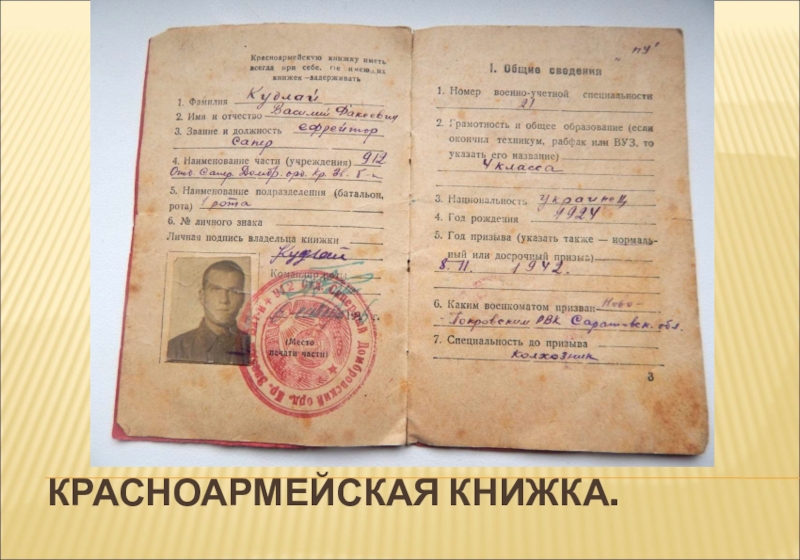 Красноармейскую книжку иметь
всегда при себе. Не имеющих
книжек—задерживать
1. Фамилия Кудлай
2. Имя и отчество Василий
3. Звание и должность ефрейтор
Сапер
4. Наименование части (учреждения) 912
Отд. Сапер. Домбр. орд. Кр. Зв. б-н
5. Наименование подразделения (батальон,
рота) 1 рота
6. № личного знака
Личная подпись владельца книжки
Кудлай
Командир роты
(Место
печати части)
912 Отд. Саперный Домбровский орд. Кр.
"пу"
I. Общие сведения
1. Номер военно-учетной специальности
21
2. Грамотность и общее образование (если
окончил техникум, рабфак или ВУЗ, то
указать его название)
4 класса
3. Национальность украинец
4. Год рождения 1924
5. Год призыва (указать также — нормаль-
ный или досрочный призыв)
8. 11. 1942.
6. Каким военкоматом призван Ново-
-Покровским РВК Саратовск. обл.
7. Специальность до призыва
колхозник
3
КРАСНОАРМЕЙСКАЯ КНИЖКА.